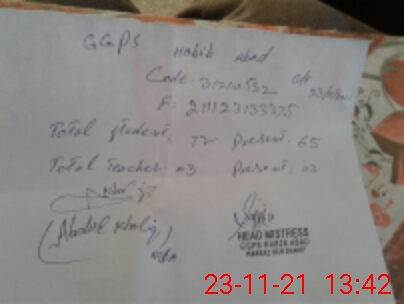 GGPS Habib Abad
Code: 31210532
F: 211123133375
Total student: 72 Present: 65
Total Teacher: 03 Present: 03
(Abdul Khaliq)
HEAD MISTRESS
GGPS HABIB ABAD
23-11-21 13:42